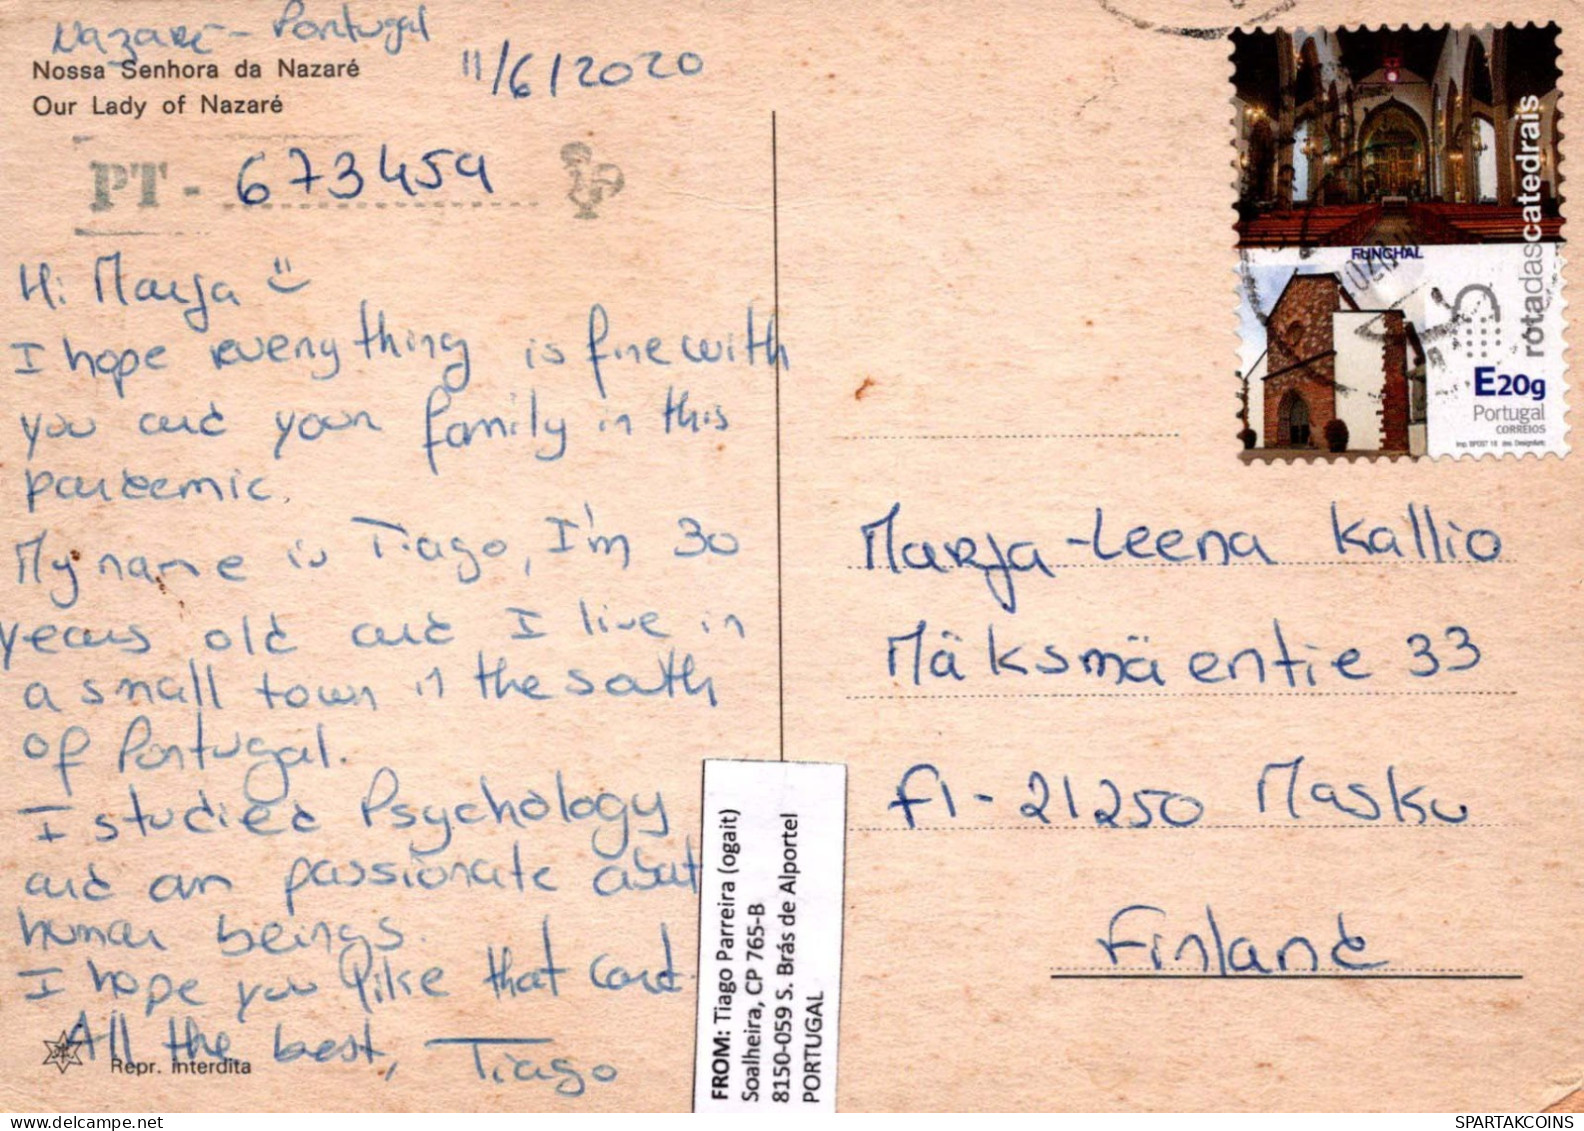 Nazaré - Portugal
11/6/2020
Nossa Senhora da Nazaré
Our Lady of Nazaré
PT - 673459
Hi Marja
I hope everything is fine with
you and your family in this
pandemic.
My name is Tiago, I'm 30
years old and I live in
a small town in the south
of Portugal.
I studied Psychology
and am passionate about
human beings.
I hope you like that card.
All the best, Tiago
Repr. interdita
FROM: Tiago Parreira (ogait)
Soalheira, CP 765-B
8150-059 S. Brás de Alportel
PORTUGAL
rotadascatedrais
FUNCHAL
E20g
Portugal
CORREIOS
Marja-Leena Kallio
Mäksmäentie 33
FI-21250 Masku
Finland
SPARTAKCOINS